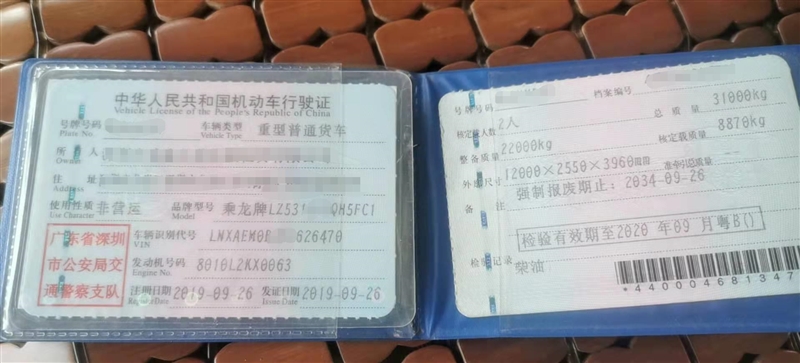 中华人民共和国机动车行驶证
Vehicle License of the People's Republic of China
号牌号码
Plate No.
车辆类型
Vehicle Type
重型普通货车
所 人
Owner
住 址
Address
使用性质
Use Character
非营运
品牌型号
Model
乘龙牌LZ531 QH5FC1
广东省深圳
市公安局交
通警察支队
车辆识别代号
VIN
LNXAEM0B 626470
发动机号码
Engine No.
8010L2KX0063
注册日期
Register Date
2019-09-26
发证日期
Issue Date
2019-09-26
号牌号码
档案编号
核定载人数
2人
总 质 量
31000kg
整备质量
22000kg
核定载质量
8870kg
外廓尺寸
12000×2550×3960
准牵引总质量
备 注
强制报废期止: 2034-09-26
检验有效期至2020 年09 月粤B()
检验记录
柴油
*440004681347